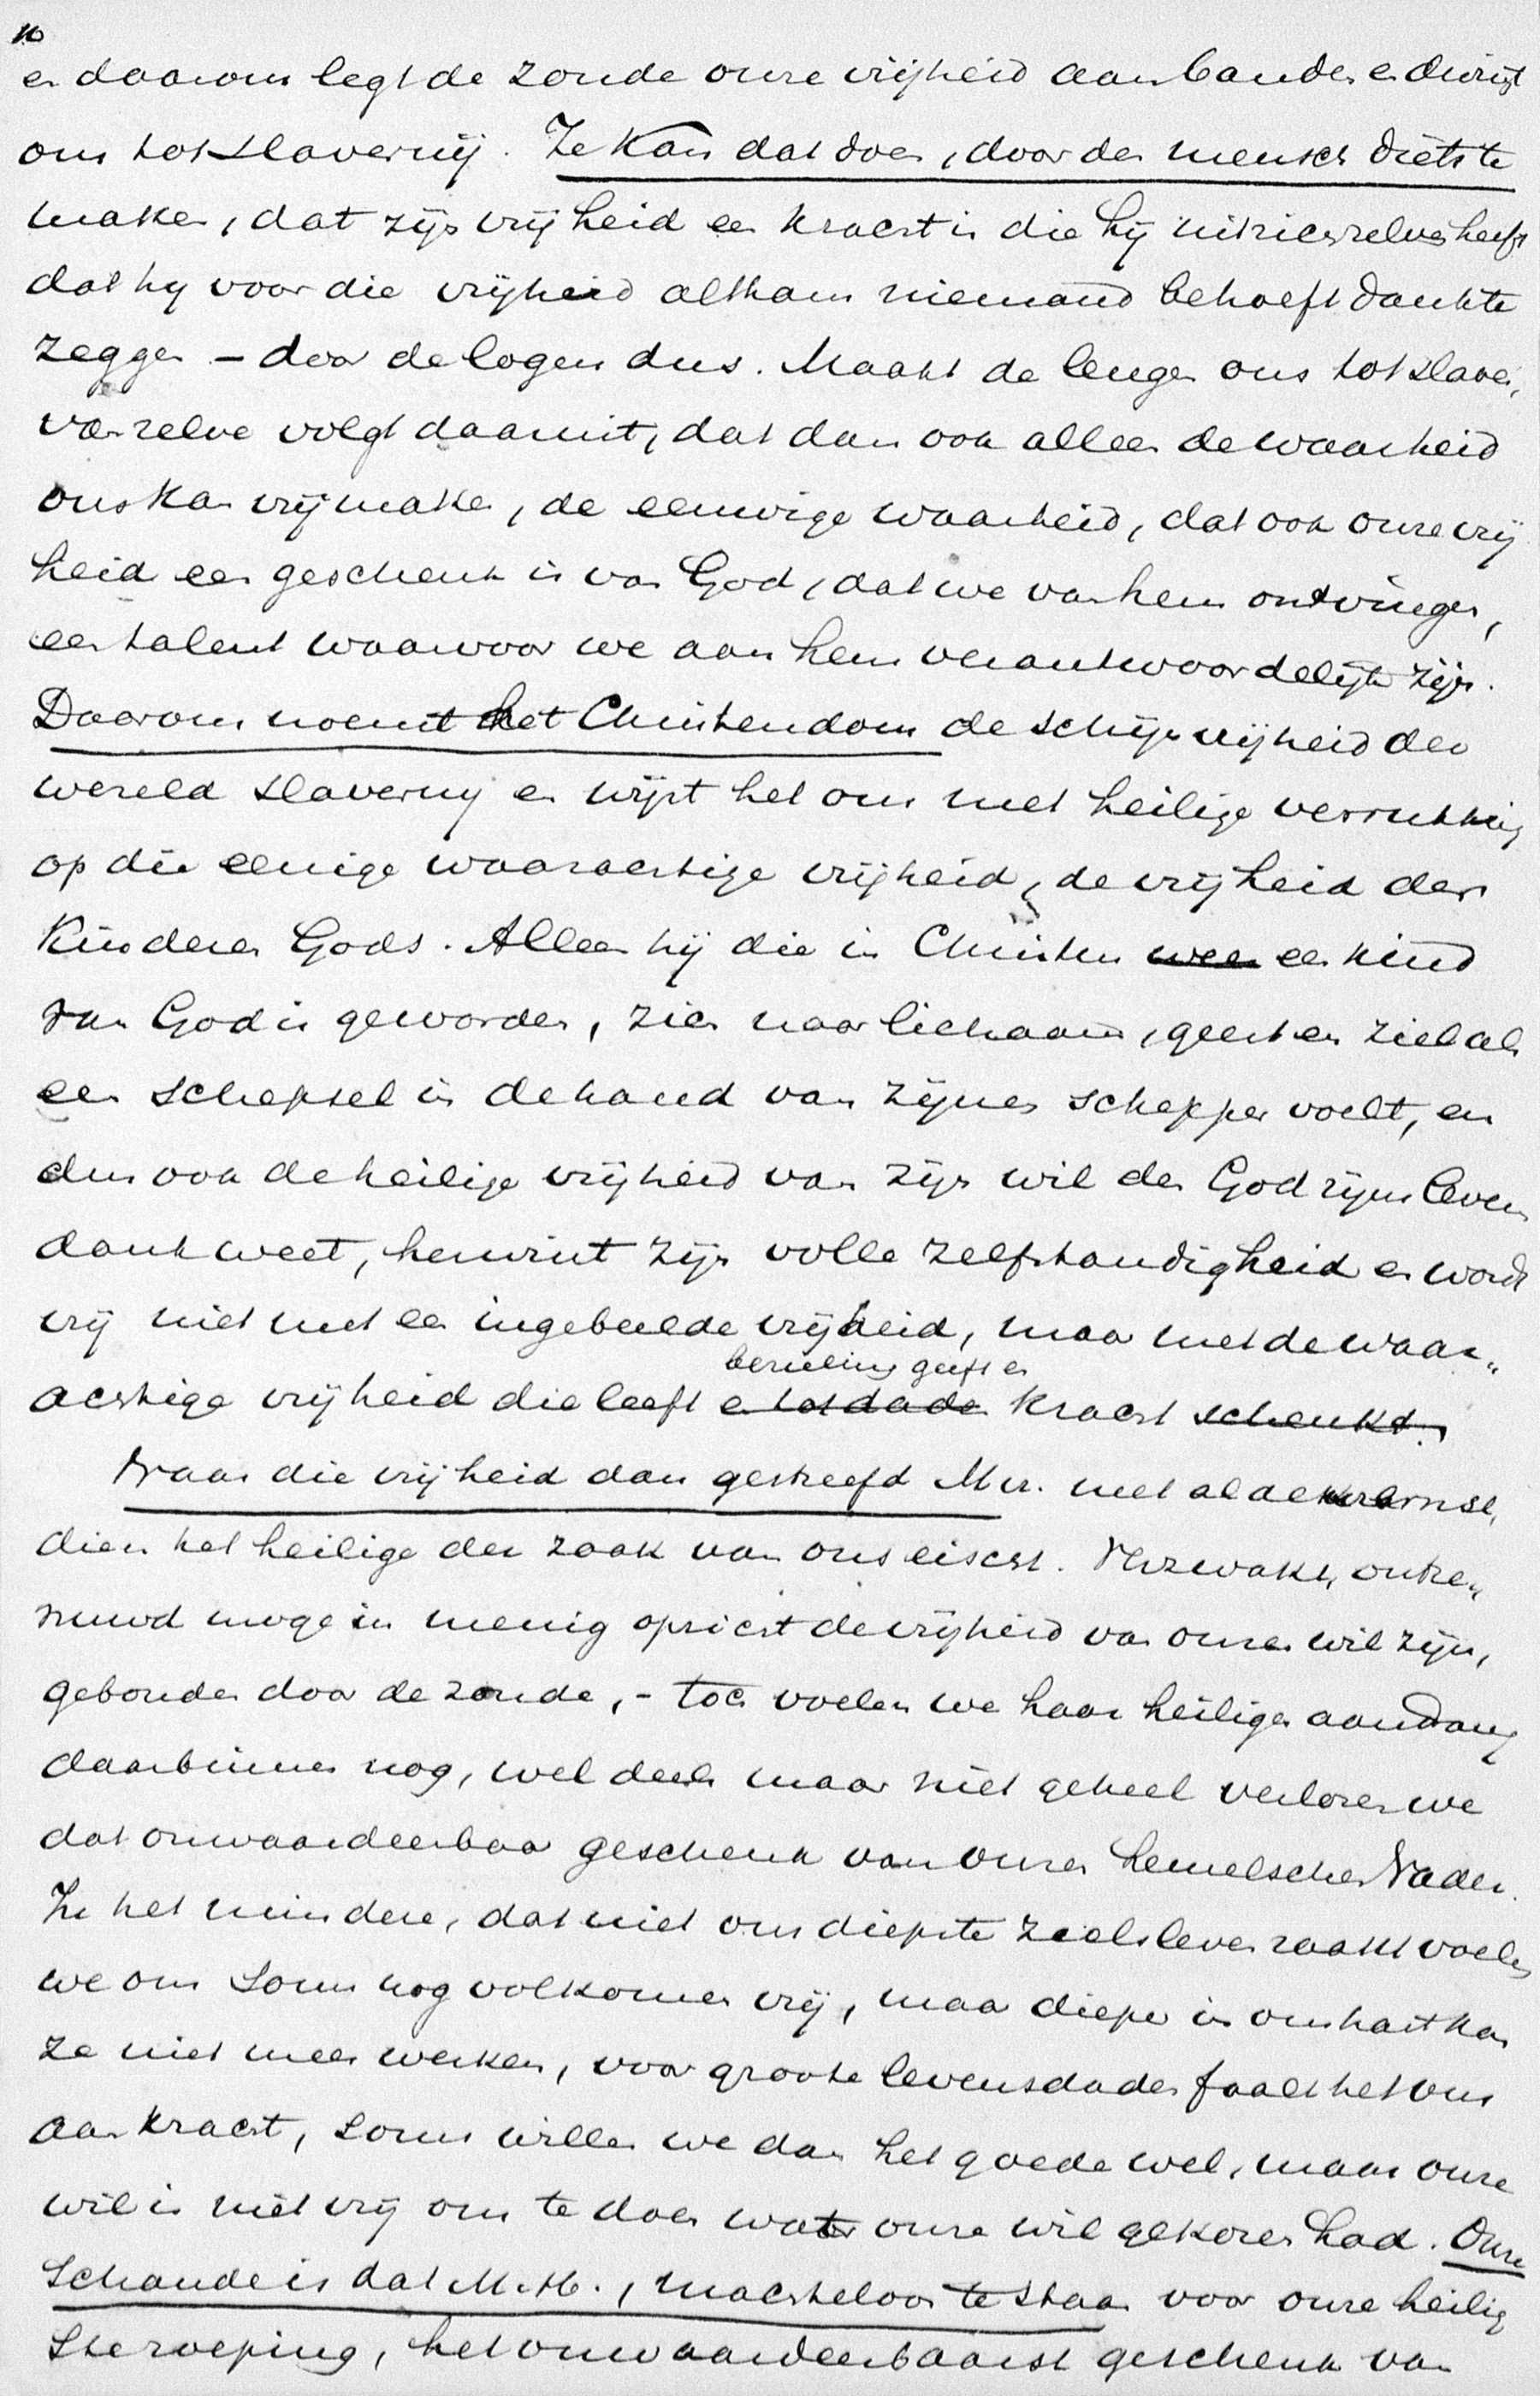 10
en daarom legt de zonde onze vrijheid aan banden en dwingt
ons tot slavernij. Ze kan dat doen, door den mensch diets te
maken, dat zijn vrijheid een kracht is die hij uit zich zelven heeft
dat hij voor die vrijheid althans niemand behoeft dank te
zeggen – door de logen dus. Maakt de leugen ons tot slaven,
van zelve volgt daaruit, dat dan ook alleen de waarheid
ons kan vrijmaken, de eeuwige waarheid, dat ook onze vrij
heid een geschenk is van God, dat we van hem ontvingen,
een talent waarvoor we aan hem verantwoordelijk zijn.
Daarom noemt het Christendom de schijnvrijheid der
wereld slavernij en wijst het ons met heilige verrukking
op die eenige waarachtige vrijheid, de vrijheid der
Kinderen Gods. Alleen hij die in Christus weer een kind
van God is geworden, zich naar lichaam, geest en ziel als
een schepsel in de hand van zijnen schepper voelt, en
dus ook de heilige vrijheid van zijn wil den God zijns levens
dank weet, herwint zijn volle zelfstandigheid en wordt
vrij niet met een ingebeelde vrijheid, maar met de waar„
bezieling geeft en
achtige vrijheid die leeft en tot daden kracht schenkt.
Naar die vrijheid dan gestreefd M.Br. met al den ernst,
dien het heilige der zaak van ons eischt. Verzwakt, ontze„
nuwd moge in menig opzicht de vrijheid van onzen wil zijn,
gebonden door de zonde, – toch voelen we haar heiligen aandrang
daarbinnen nog, wel deels maar niet geheel verloren we
dat onwaardeerbaar geschenk van onzen hemelschen Vader.
In het mindere, dat niet ons diepste zielsleven raakt voelen
we ons soms nog volkomen vrij, maar dieper in ons hart kan
ze niet meer werken, voor groote levensdaden faalt het ons
aan kracht, soms willen we dan het goede wel, maar onze
wil is niet vrij om te doen wat onze wil gekozen had. Onze
Schande is dat M.H., machteloos te staan voor onze heilig
ste roeping, het onwaardeerbaarst geschenk van